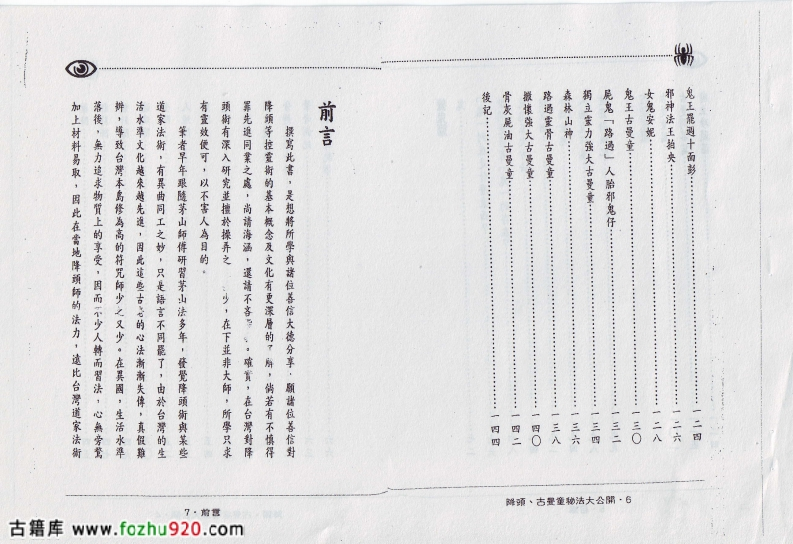 鬼王羅迦十面彭……一二四
邪神法王拍央……一二六
女鬼安妮……一二八
鬼王古曼童……一三〇
屍鬼「路過」人胎邪鬼仔……一三二
獨立靈力強大古曼童……一三四
森林山神……一三六
路過靈骨古曼童……一三八
撒懷強大古曼童……一四〇
骨灰屍油古曼童……一四二
後記……一四四
降頭、古曼童秘法大公開·6
前言
撰寫此書，是想將所學與諸位善信大德分享，願諸位善信對
降頭等控靈術的基本概念及文化有更深層的了解，倘若有不慎得
罪先進同業之處，尚請海涵，還請不吝。確實，在台灣對降
頭術有深入研究並擅於操弄之少，在下並非大師，所學只求
有靈效便可，以不害人為目的。
筆者早年跟隨茅山師傅研習茅山法多年，發覺降頭術與某些
道家法術，有異曲同工之妙，只是語言不同罷了，由於台灣的生
活水準文化越來越先進，因此這些古老的心法漸漸失傳，真假難
辨，導致台灣本島修為高的符咒師少之又少。在異國，生活水準
落後，無力追求物質上的享受，因而不少人轉而習法，心無旁鶩
加上材料易取，因此在當地降頭師的法力，遠比台灣道家法術
7·前言
古籍库 www.fozhu920.com